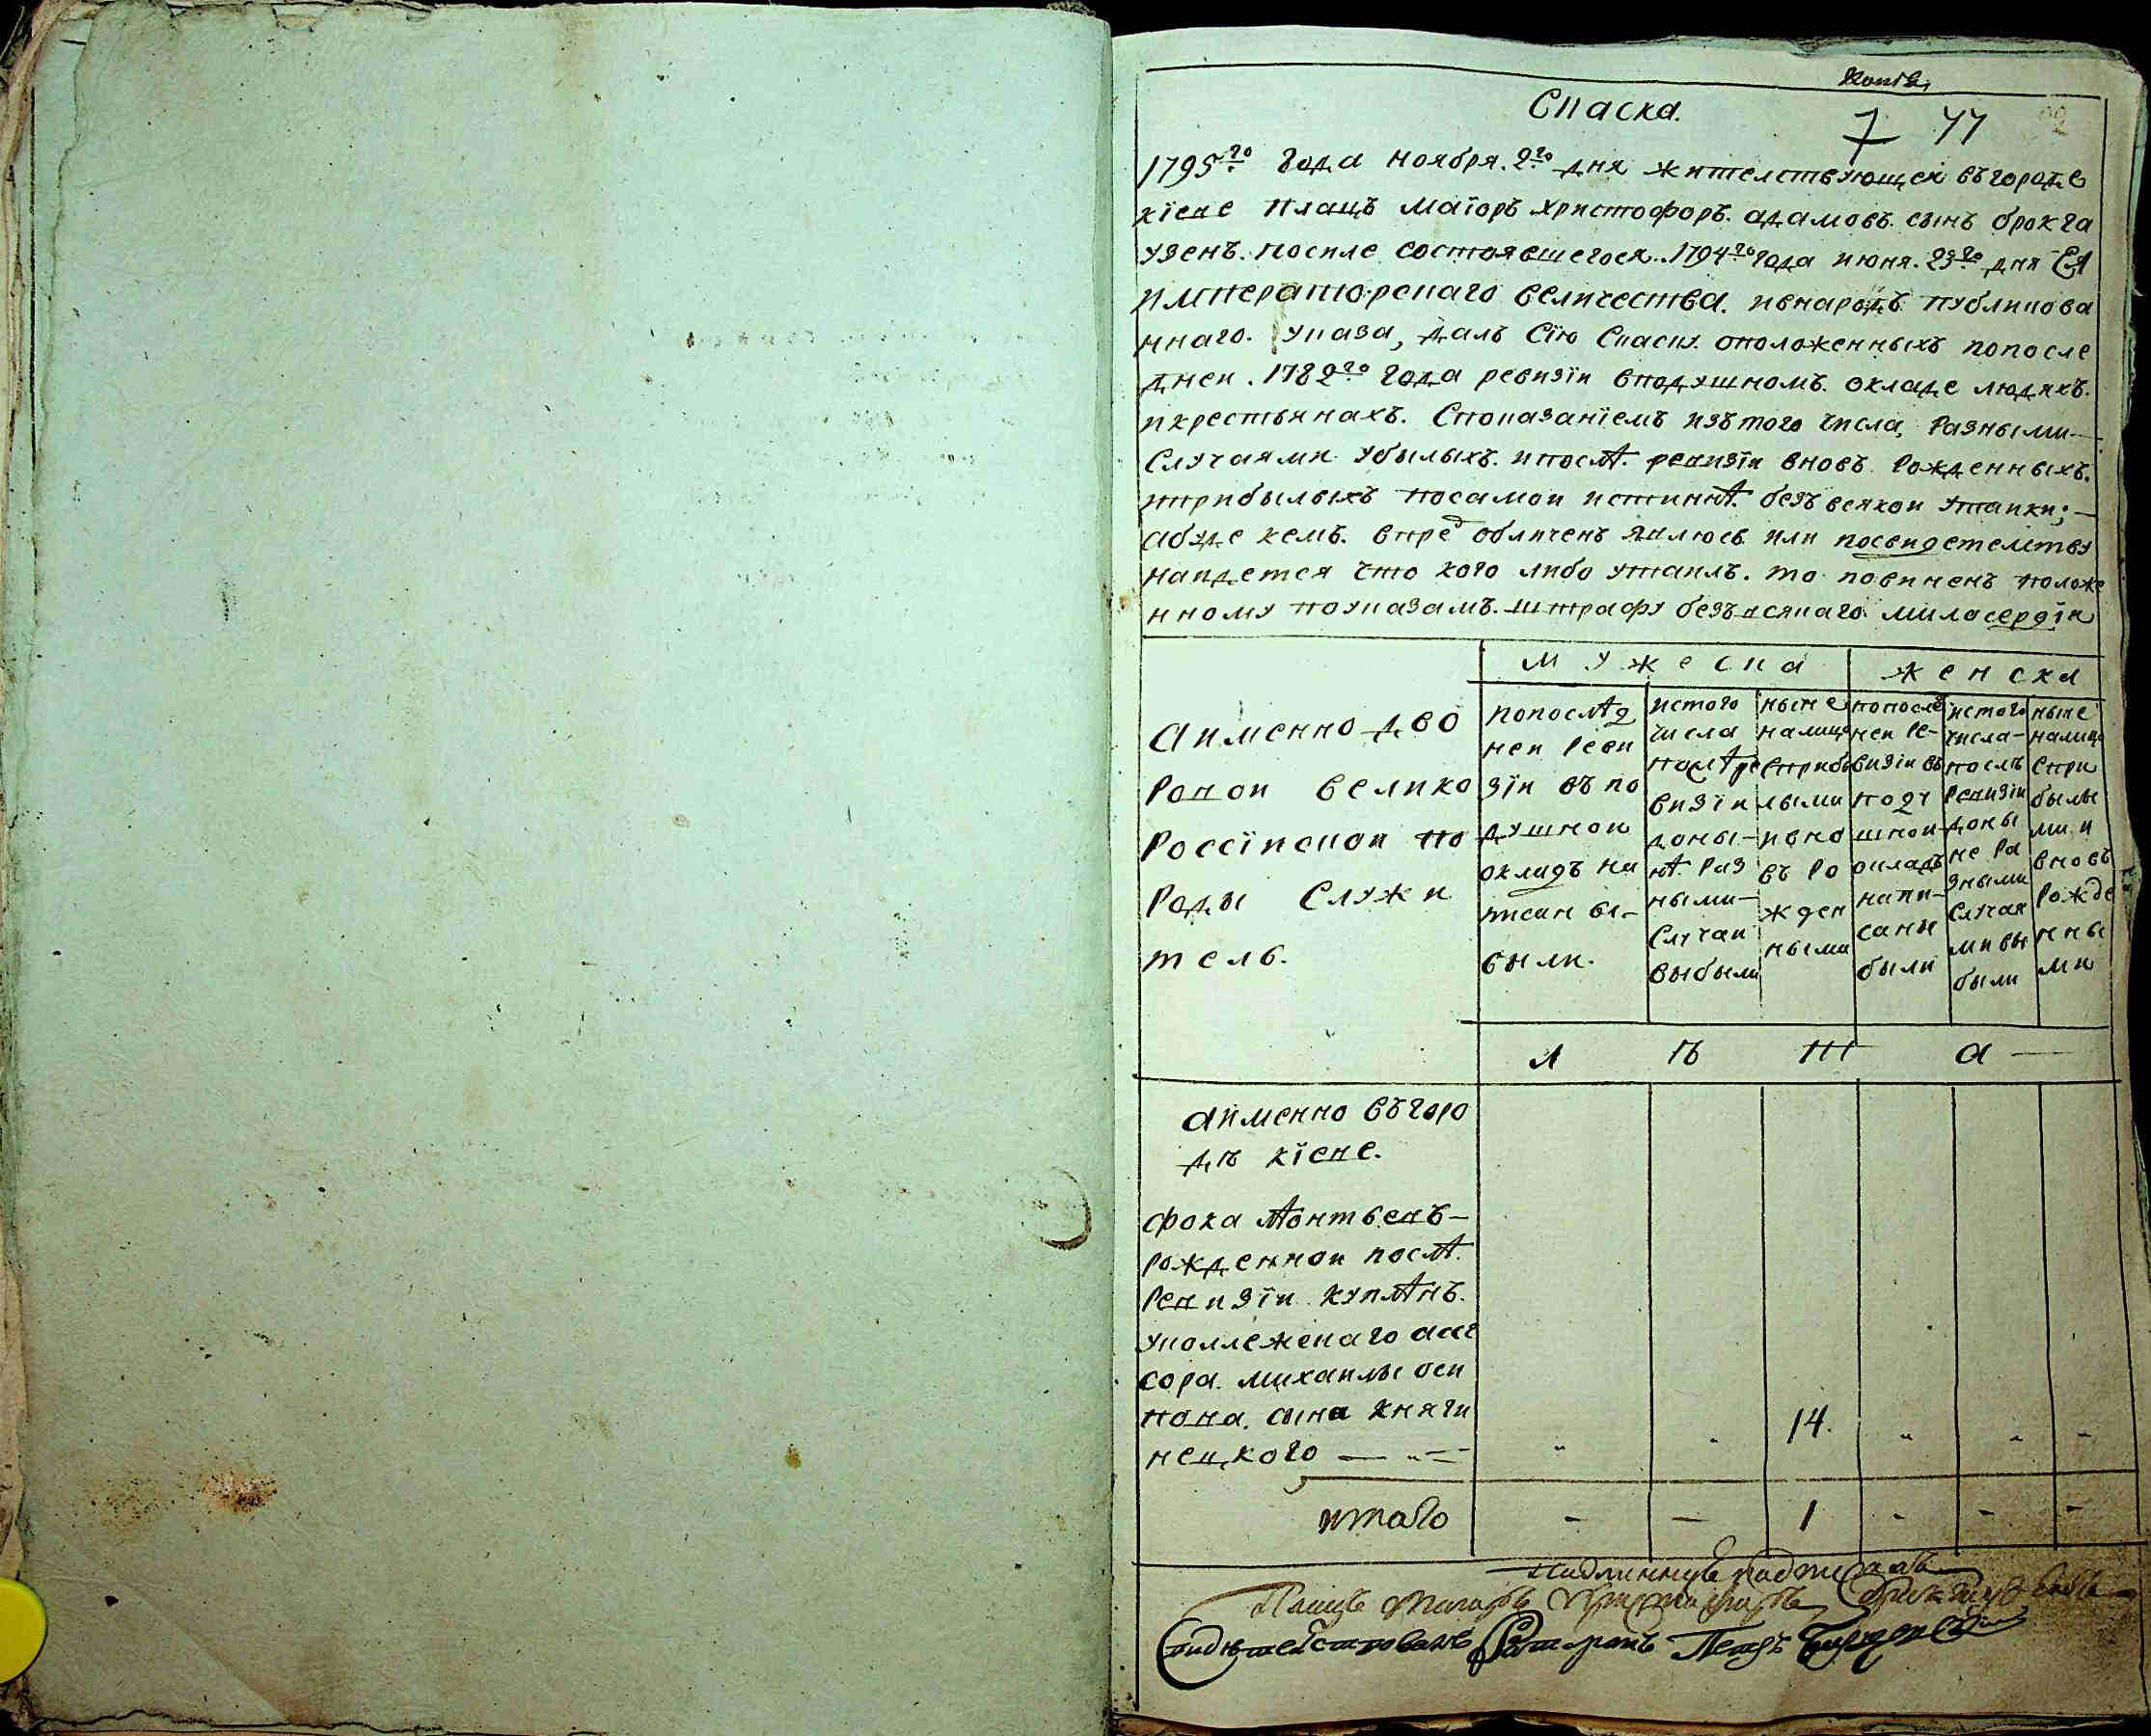 Копiя
Сказка.
7 44
1795го года ноября 2го дня жителствующей въ городе
кїеве плацъ маїоръ христофоръ адамовъ сынъ брокга
узенъ. после состоявшегося 1794го года июня 23го дня Ея
императорскаго величества. ивнародъ публикова
ннаго. указа, далъ Сїю Скаску. оположенныхъ попосле
дней. 1782го года ревизїи вподушномъ. окладе людяхъ.
икрестьянахъ. Споказанїемъ изътого числа, Разными
Случаями убылыхъ. ипослѣ. ревизїи вновь Рожденныхъ.
иприбылыхъ посамой истиннѣ. безъ всякой утайки;
абуде кемъ. впред обличенъ явлюсь или посвидетелству
найдется что кого либо утаилъ. то повиненъ положе
нному поуказамъ. штрафу безъ всякаго миласердїя
мужеска женска
Аименно дво
Ровой велико
Россїйской по
Роды Служи
тель.
попослѣд
ней Реви
зїи въ по
душной
окладъ на
писаны
были.
истого
числа
послѣ ре
визїи
доны-
нѣ. раз
ными
Случаи
выбыли
ныне
налицо
сприбы
лыми
ивно
въ Ро
жден
ными
попослѣ
ней Ре-
визїи въ
поду
шной
окладъ
напи-
саны
были
истого
числа
послѣ
Ревизїи
доны
не Ра
зными
Случая
ми вы
были
ныне
налицо
спри
былы
ми и
вновь
Рожде
нны
ми
л ѣ т а
аименно въгоро
дѣ кїеве.
фока
Рожденной послѣ.
Ревизїи. куплѣнъ.
уколлежскаго асе
сора. михайлы оси
пова. сына княги
нецкого 14.
итого 1
Подлинную подписалъ
Плацъ Маїоръ Христофоръ
Свидѣтелствовалъ Ротмистръ Петръ